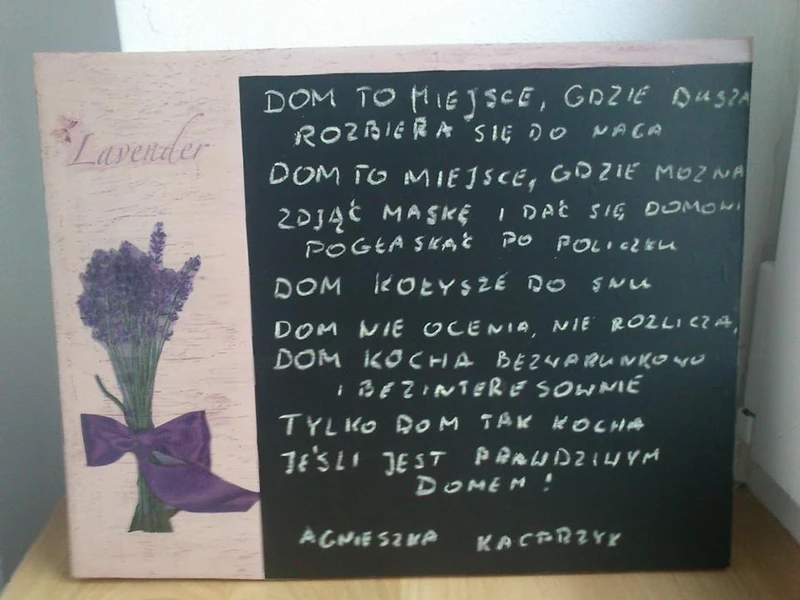 Lavender
DOM TO MIEJSCE, GDZIE DUSZA
ROZBIERA SIĘ DO NAGA
DOM TO MIEJSCE, GDZIE MOZNA
ZDJĄĆ MASKĘ I DAĆ SIĘ DOMOWI
POGŁASKAĆ PO POLICZKU
DOM KOŁYSZE DO SNU
DOM NIE OCENIA, NIE ROZLICZA,
DOM KOCHA BEZWARUNKOWO
I BEZINTERESOWNIE
TYLKO DOM TAK KOCHA
JEŚLI JEST PRAWDZIWYM
DOMEM!
AGNIESZKA KACPRZYK